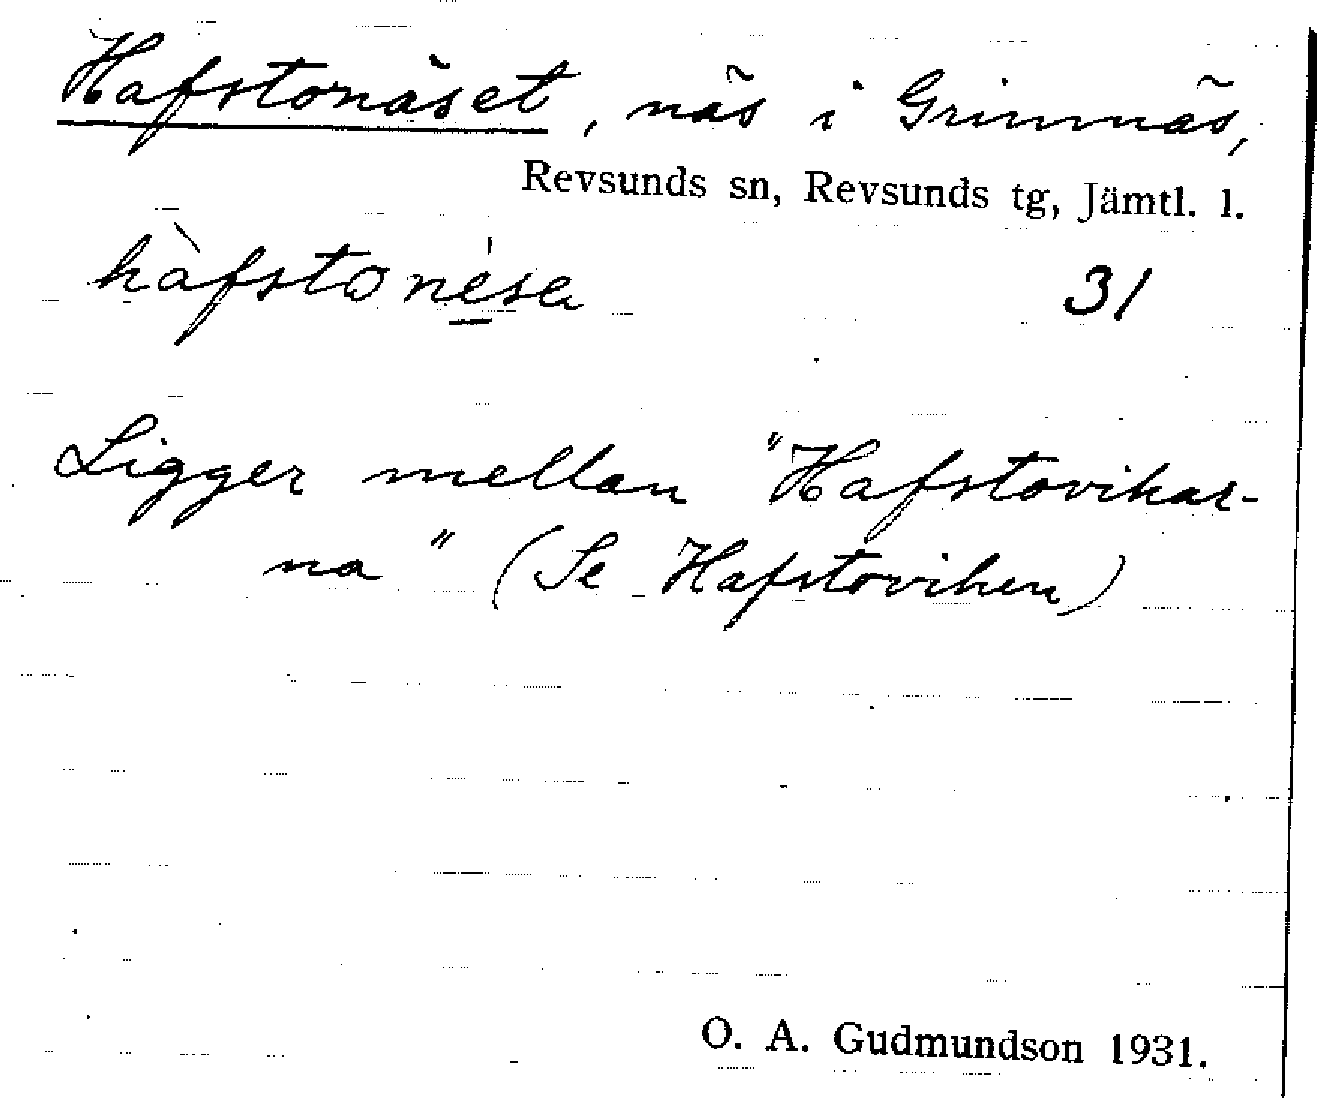 Hafstonäset, näs i Grimnäs,
Revsunds sn, Revsunds tg, Jämtl. l.
hàfstonésa 31
Ligger mellan "Hafstovikar-
na" (Se Hafstoviken)
O. A. Gudmundson 1931.